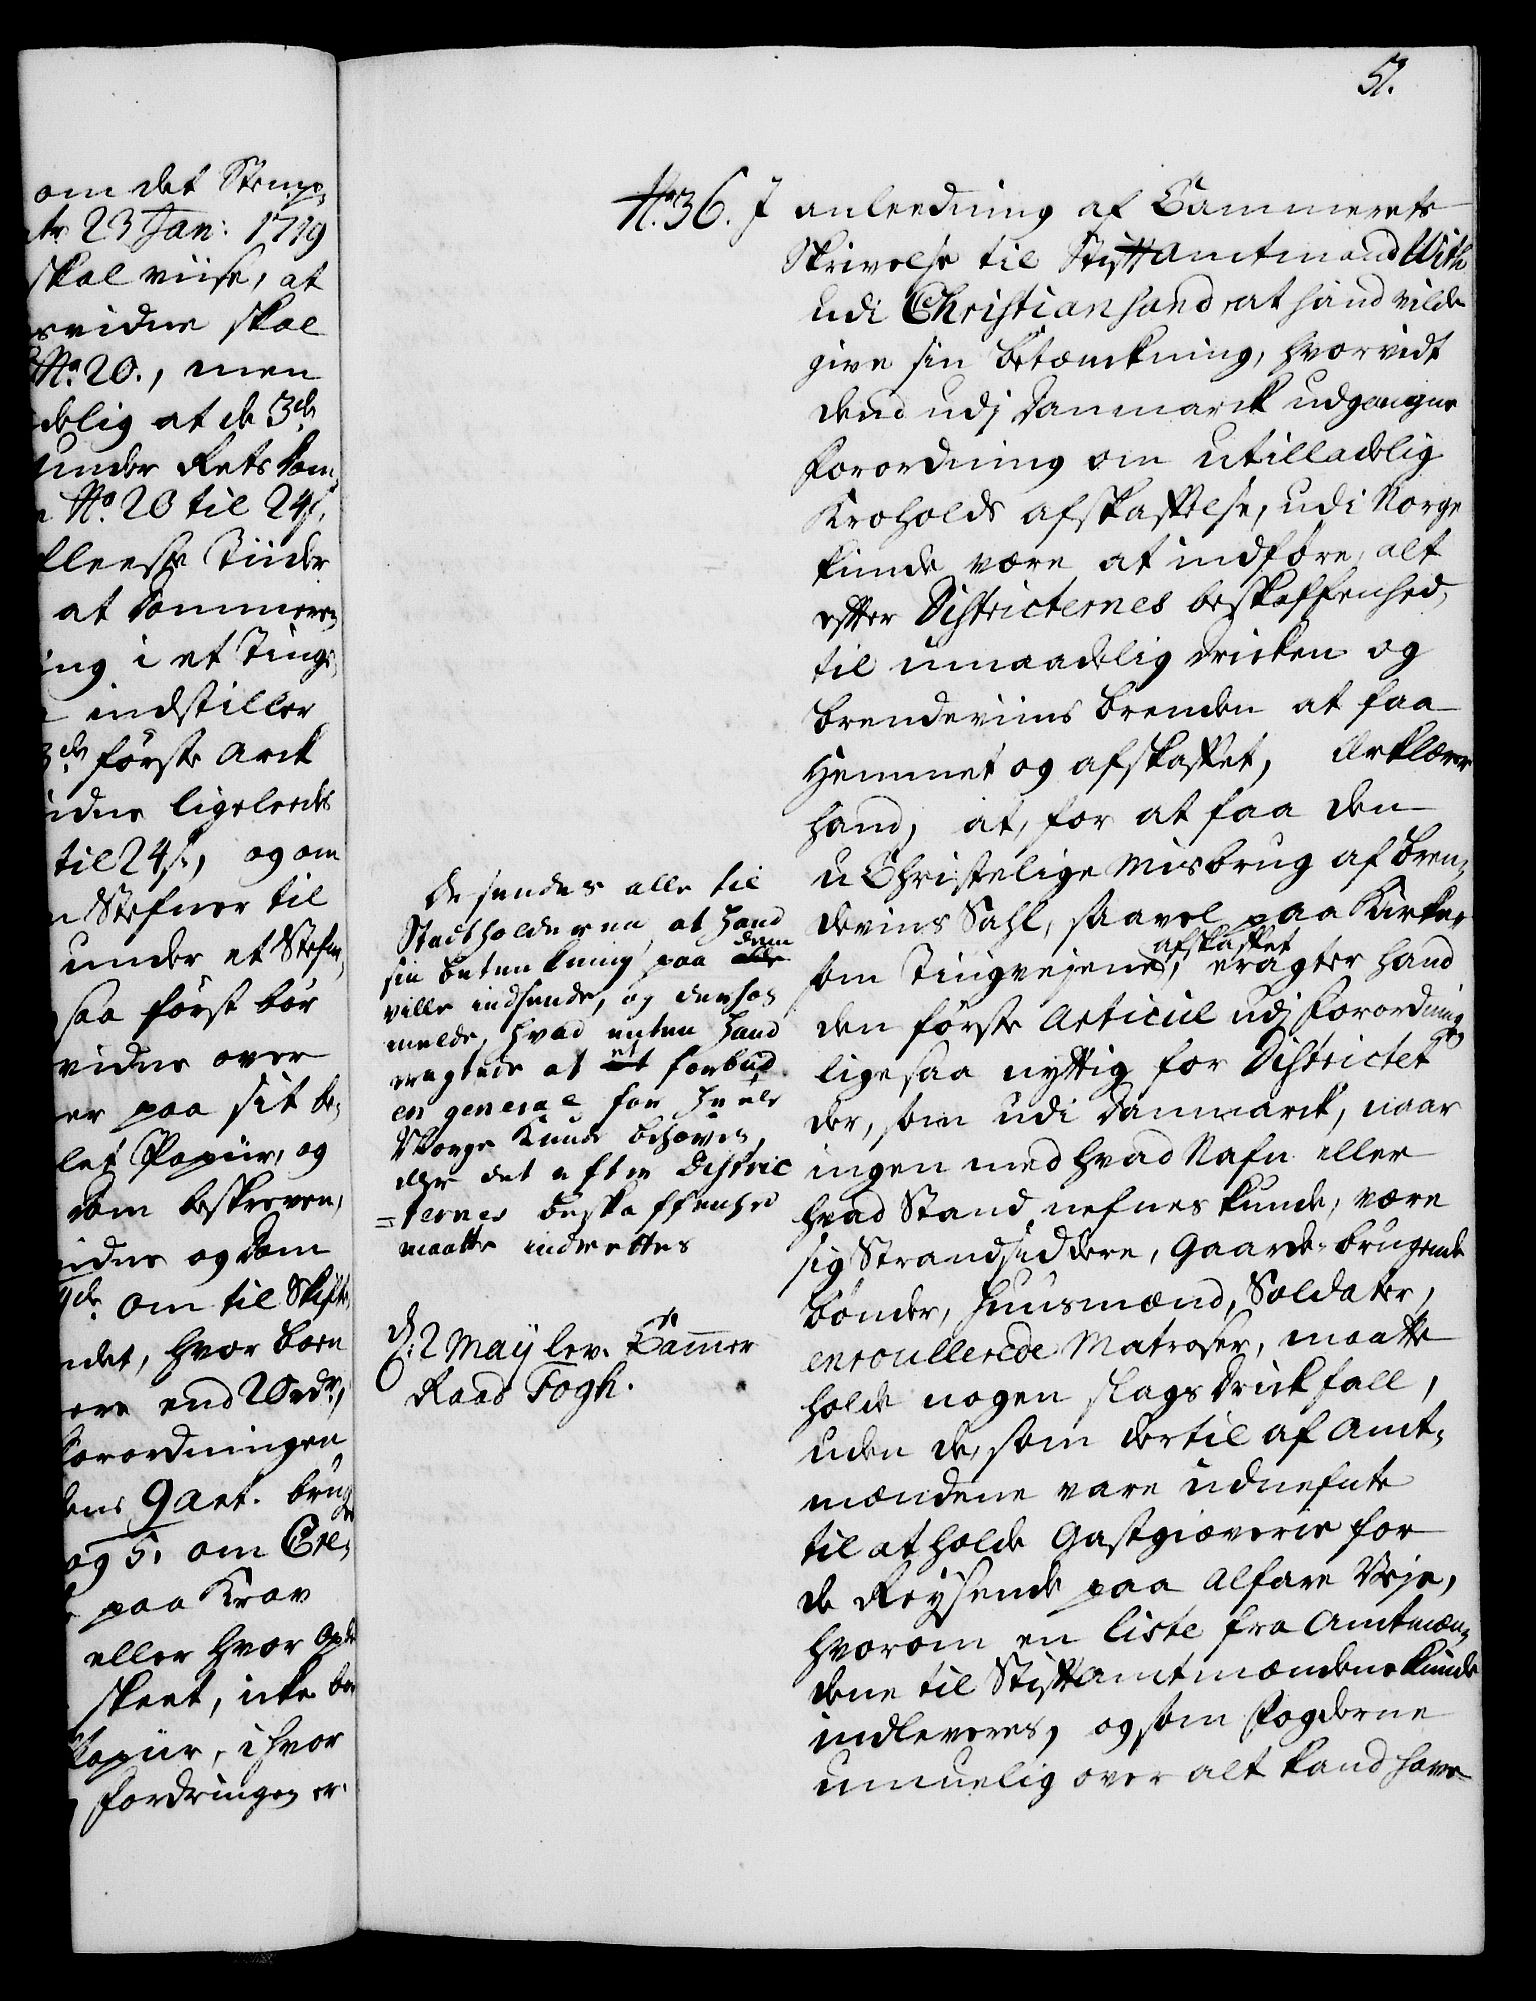 om det Stemp-
ats 23 Jan: 1719
skal viise, at
svidne skal
No. 20., men
delig at de 3de
under Rets Dom
No. 20 til 24 s.
fleeste Tiider
at Dommeren
ing i et Tings
indstiller
3de første Arck
idne ligeleedes
til 24 s., og om
Stefner til
under et Stefn
saa først bør
vidne over
er paa sit be-
let Papiir, og
Dom beskreven,
idne og Dom
4de om til Skifte
ndet, hvor boen
ere end 20 rdr,
Forordningen
dens 9 art. brug
og 5. om Cre-
paa Krav
eller hvor
skeet, icke bør
Papiir, i hvor
fordringen er.
51.
No. 36. I anleedning af Cammerets
Skrivelse til Stiftamtmand With
udi Christiansand, at hand vilde
give sin betænckning, hvorvidt
dend udj Danmarck udgangne
Forordning om utilladelig
Kroholds afskaffelse, udi Norge
kunde være at indføre, alt
efter Districternes beskaffenhed,
til umaadelig dricken og
brendeviins brenden at faa
hemmet og afskaffet, erklærer
hand, at, for at faa den
uChristelige misbrug af bren-
deviins Sahl, saavel paa Kirke
som Tingvejene, afskaffet eragter hand
den første Articul udj Forordning
ligesaa nyttig for Districtet
der, som udi Danmarck, naar
ingen med hvad Nafn eller
hvad Stand nefnes kunde, være
sig Strandsiddere, Gaarde-brugende
bønder, Huusmænd, Soldater,
enroullerede Matroser, maatte
holde nogen slags Drickfall,
uden de, som dertil af Amt-
mændene vare udnefnte
til at holde Gastgiæverie for
de Reysende paa alfare Veje,
hvorom en Liste fra Amtmæn-
dene til Stiftamtmændene kunde
indleveres, og som Fogderne
umuelig over alt kand have
De sendes alle til
Stadtholderen, at hand
sin betenkning paa alle dem
ville indsende, og derhos
melde, hvad enten hand
eragtede at et forbud
en general for heele
Norge kunde behøves,
eller det efter Distric
=ternes beskaffenhed
maatte indrettes
d. 2 Maij lev. Cammer
Raad Fogh.